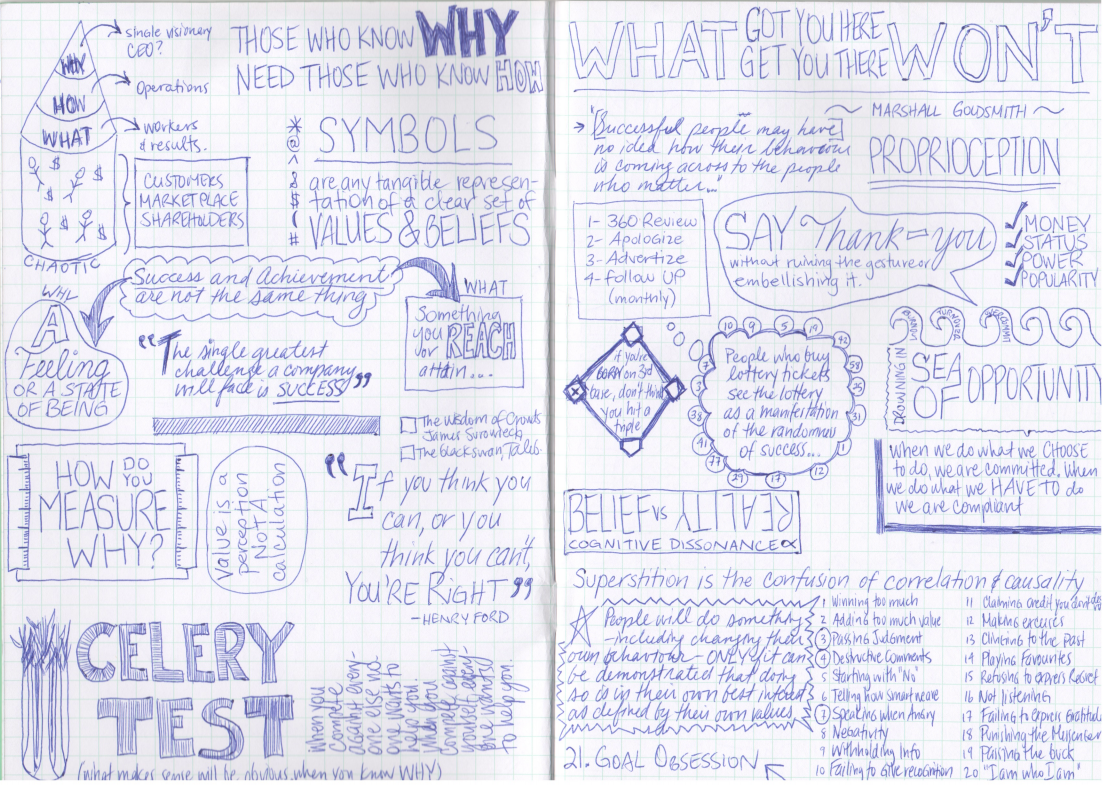 single visionary
CEO?
WHY
Operations
HOW
WHAT
workers
& results.
CUSTOMERS
MARKETPLACE
SHAREHOLDERS
CHAOTIC
THOSE WHO KNOW WHY
NEED THOSE WHO KNOW HOW
* @ ^ & $ ( #
SYMBOLS
are any tangible represen-
tation of a clear set of
VALUES & BELIEFS
Success and Achievement
are not the same thing
WHY
A
Feeling
OR A STATE
OF BEING
WHAT
Something
you REACH
or
attain...
"The single greatest
challenge a company
will face is SUCCESS"
The Wisdom of Crowds
James Surowieck
The black swan, Taleb.
HOW DO YOU
MEASURE
WHY?
Value is a
perception
NOT A
calculation
"If you think you
can, or you
think you can't,
YOU'RE RIGHT"
-HENRY FORD
CELERY
TEST
when you
compete
against every-
one else no-
one wants to
help you.
when you
compete against
yourself every-
one wants
to help you.
(what makes sense will be obvious when you know WHY)
WHAT GOT YOU HERE WON'T
GET YOU THERE
MARSHALL GOLDSMITH
"Successful people may have
no idea how their behaviour
is coming across to the people
who matter..."
PROPRIOCEPTION
1- 360 Review
2- Apologize
3- Advertize
4- Follow UP
(monthly)
SAY Thank-you
without ruining the gesture or
embellishing it.
MONEY
STATUS
POWER
POPULARITY
if you're
BORN on 3rd
base, don't think
you hit a
triple
10 9 5 19 42
58
25
31
1
12
17
29
77
41
33
7
People who buy
lottery tickets
see the lottery
as a manifestation
of the randomness
of success...
DROWNING IN
SEA
OF OPPORTUNITY
When we do what we CHOOSE
to do, we are committed. When
we do what we HAVE TO do
we are compliant
BELIEF vs REALITY
COGNITIVE DISSONANCE
Superstition is the confusion of correlation & causality
People will do something
-including changing their
own behaviour - ONLY if it can
be demonstrated that doing
so is in their own best interest
as defined by their own values.
21. GOAL OBSESSION
1 Winning too much
2 Adding too much value
3 Passing Judgment
4 Destructive Comments
5 Starting with "No"
6 Telling how smart we are
7 Speaking when Angry
8 Negativity
9 Withholding Info
10 Failing to Give recognition
11 Claiming credit you don't
12 Making excuses
13 Clinging to the Past
14 Playing Favourites
15 Refusing to express Regret
16 Not listening
17 Failing to express Gratitud
18 Punishing the Messenger
19 Passing the buck
20 "I am who I am"